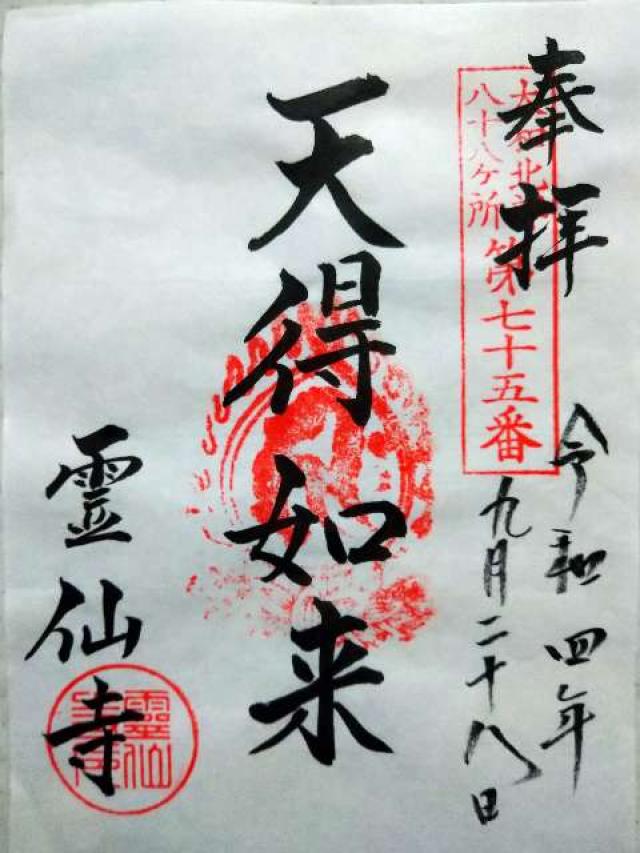 奉拝
八十八ケ所
第七十五番
令和四年
九月二十八日
天得如来
霊仙寺